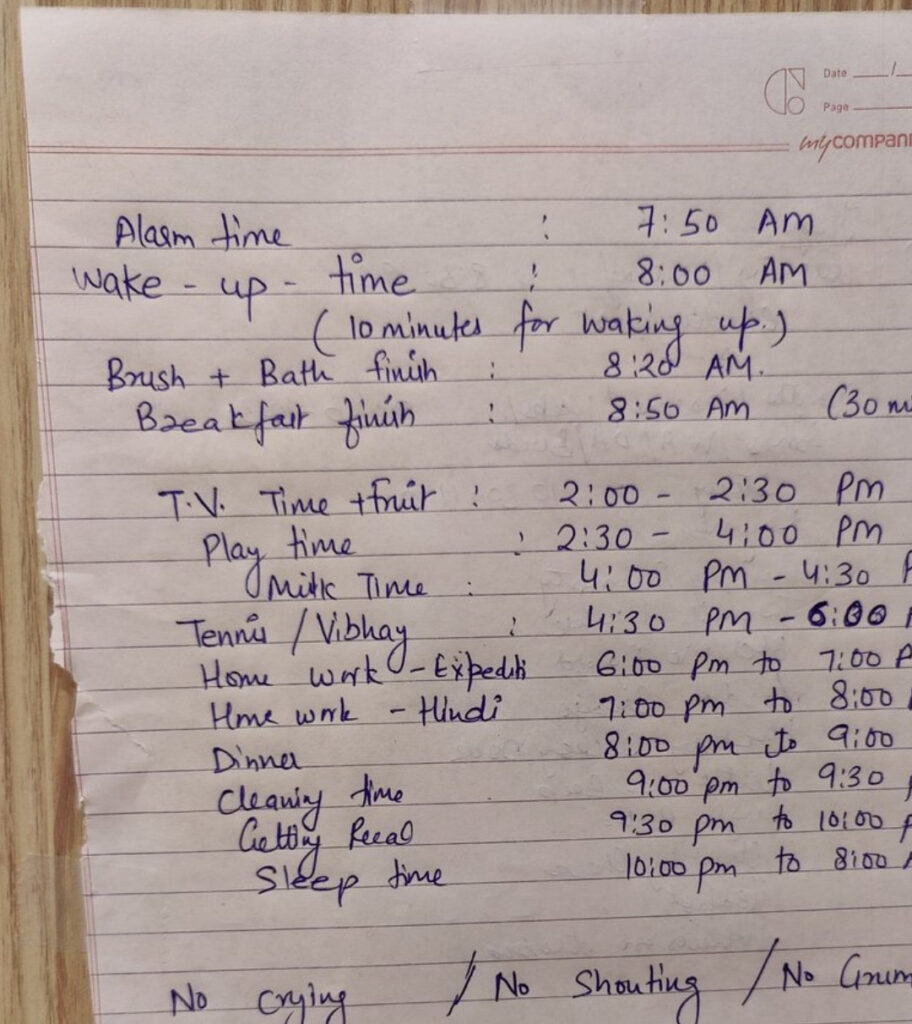 Date __/__
Page ____
mycompani
Alarm time : 7:50 AM
Wake - up - time : 8:00 AM
(10 minutes for waking up.)
Brush + Bath finish : 8:20 AM.
Breakfast finish : 8:50 AM (30 m
T.V. Time + fruit : 2:00 - 2:30 PM
Play time : 2:30 - 4:00 PM
Milk Time : 4:00 PM - 4:30 P
Tennis / Vibhay : 4:30 PM - 6:00 P
Home work - Expediti 6:00 pm to 7:00 P
Home work - Hindi 7:00 pm to 8:00
Dinner 8:00 pm to 9:00
Cleaning time 9:00 pm to 9:30 p
Getting 9:30 pm to 10:00 p
Sleep time 10:00 pm to 8:00 A
No crying / No Shouting / No Grum